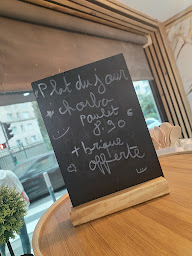 Plat du jour
charbo
Poulet
8.90 €
+ brique
offerte